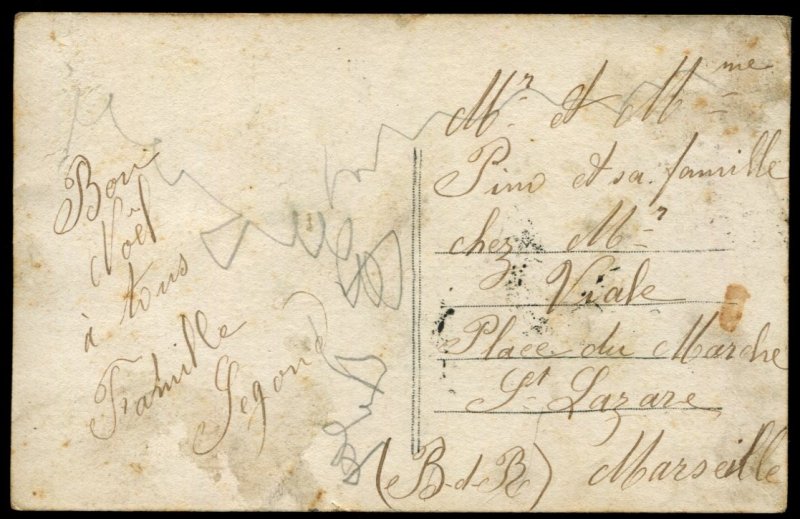 Bon
Noël
à tous
Famille
Segond
Mr et Mme
Pino et sa famille
chez Mr
Viale
Place du Marche
St Lazare
Marseille
(B-d-R)